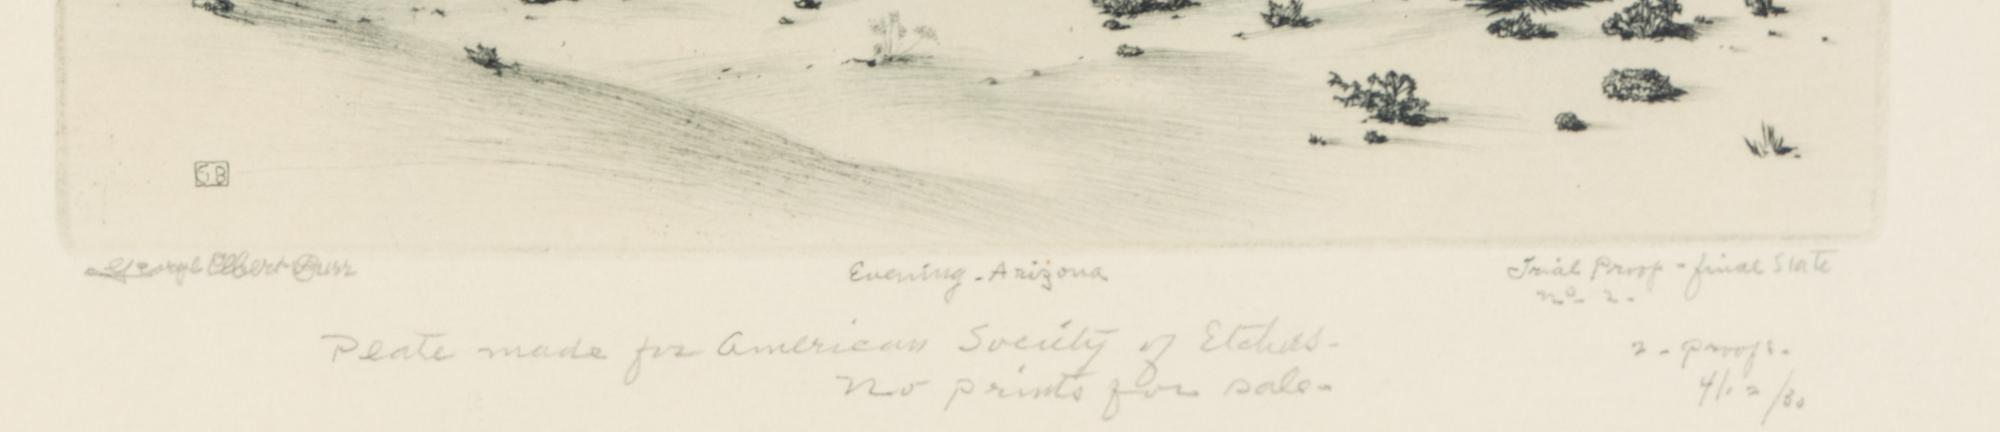 GB
George Elbert Burr
Evening - Arizona
Trial Proof - final State
No- 2-
Plate made for American Society of Etchers-
No prints for sale-
2 - proofs-
4/12/30